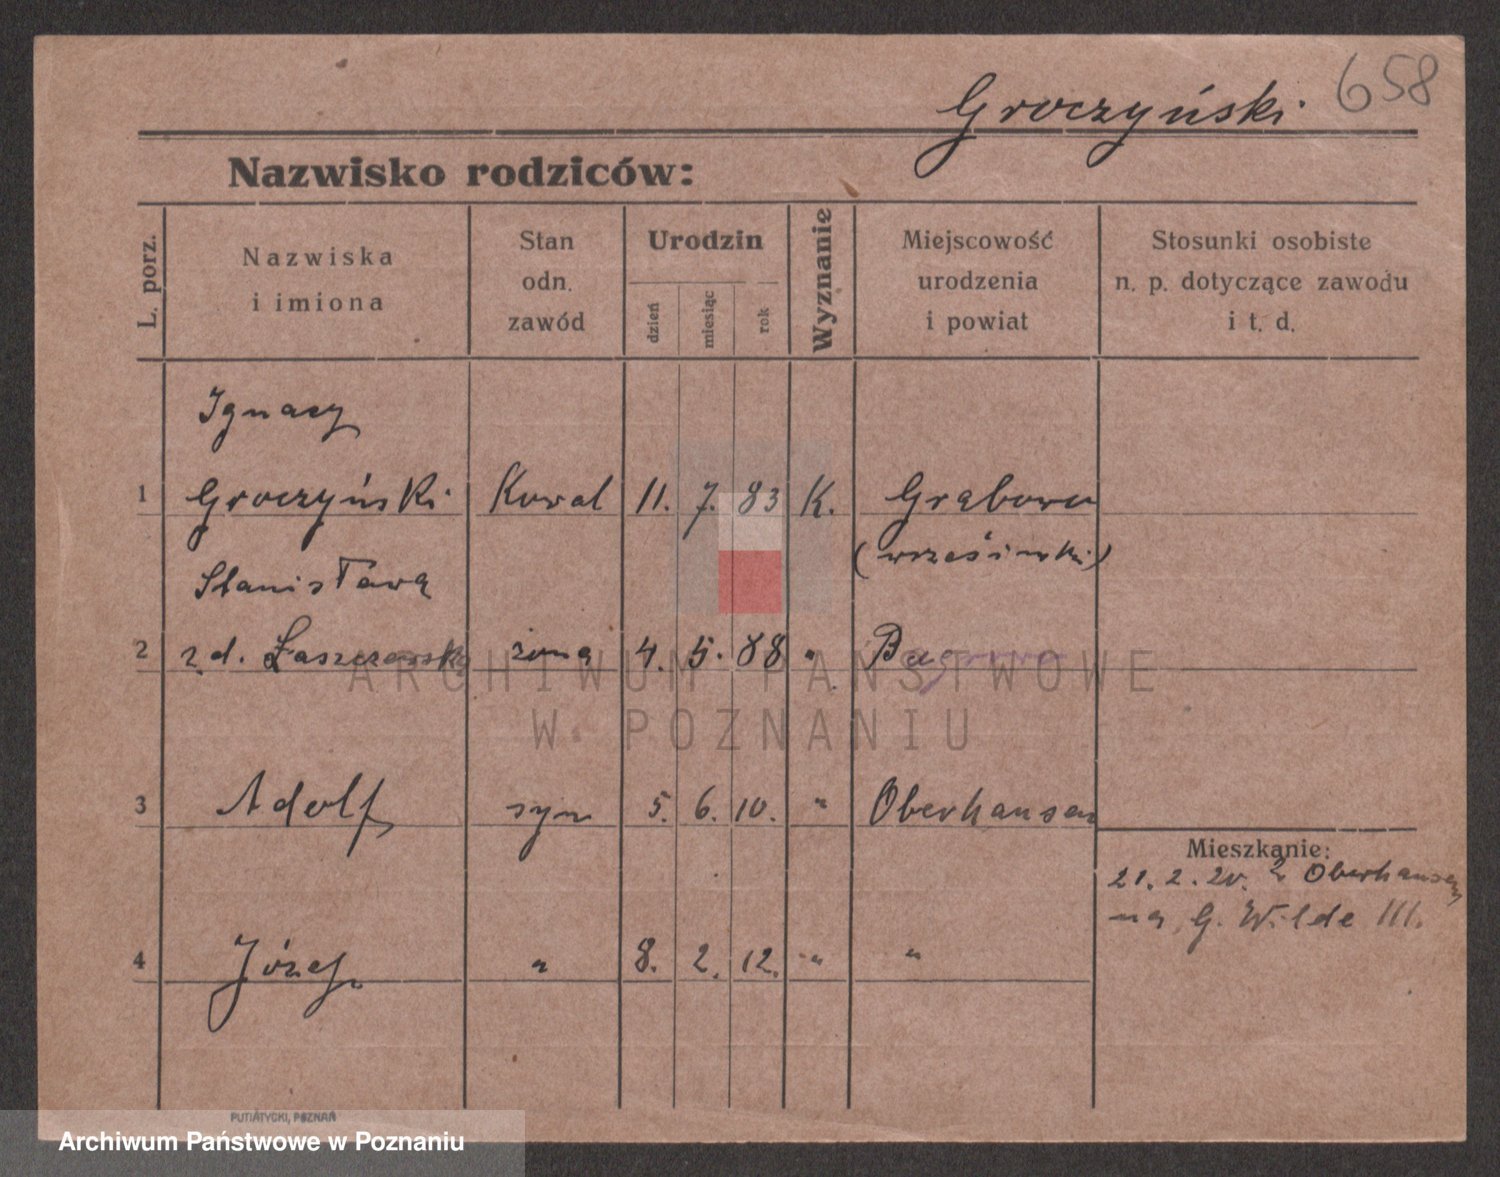 658
Groczyński
Nazwisko rodziców:
L. porz.
Nazwiska
i imiona
Stan
odn.
zawód
Urodzin
dzień
miesiąc
rok
Wyznanie
Miejscowość
urodzenia
i powiat
Stosunki osobiste
n. p. dotyczące zawodu
i t. d.
Ignacy
1 Groczyński Kowal 11. 7. 83 K. Grabowo
(wrzesiński)
Stanisława
2 z d. Łaszczewska żona 4. 5. 88 "
3 Adolf syn 5. 6. 10. " Oberhausen
Mieszkanie:
21. 2. 20. z Oberhausen
na G. Wilde III.
4 Józef " 8. 2. 12. " "
ARCHIWUM PAŃSTWOWE
W POZNANIU
PUTIATYCKI, POZNAŃ
Archiwum Państwowe w Poznaniu